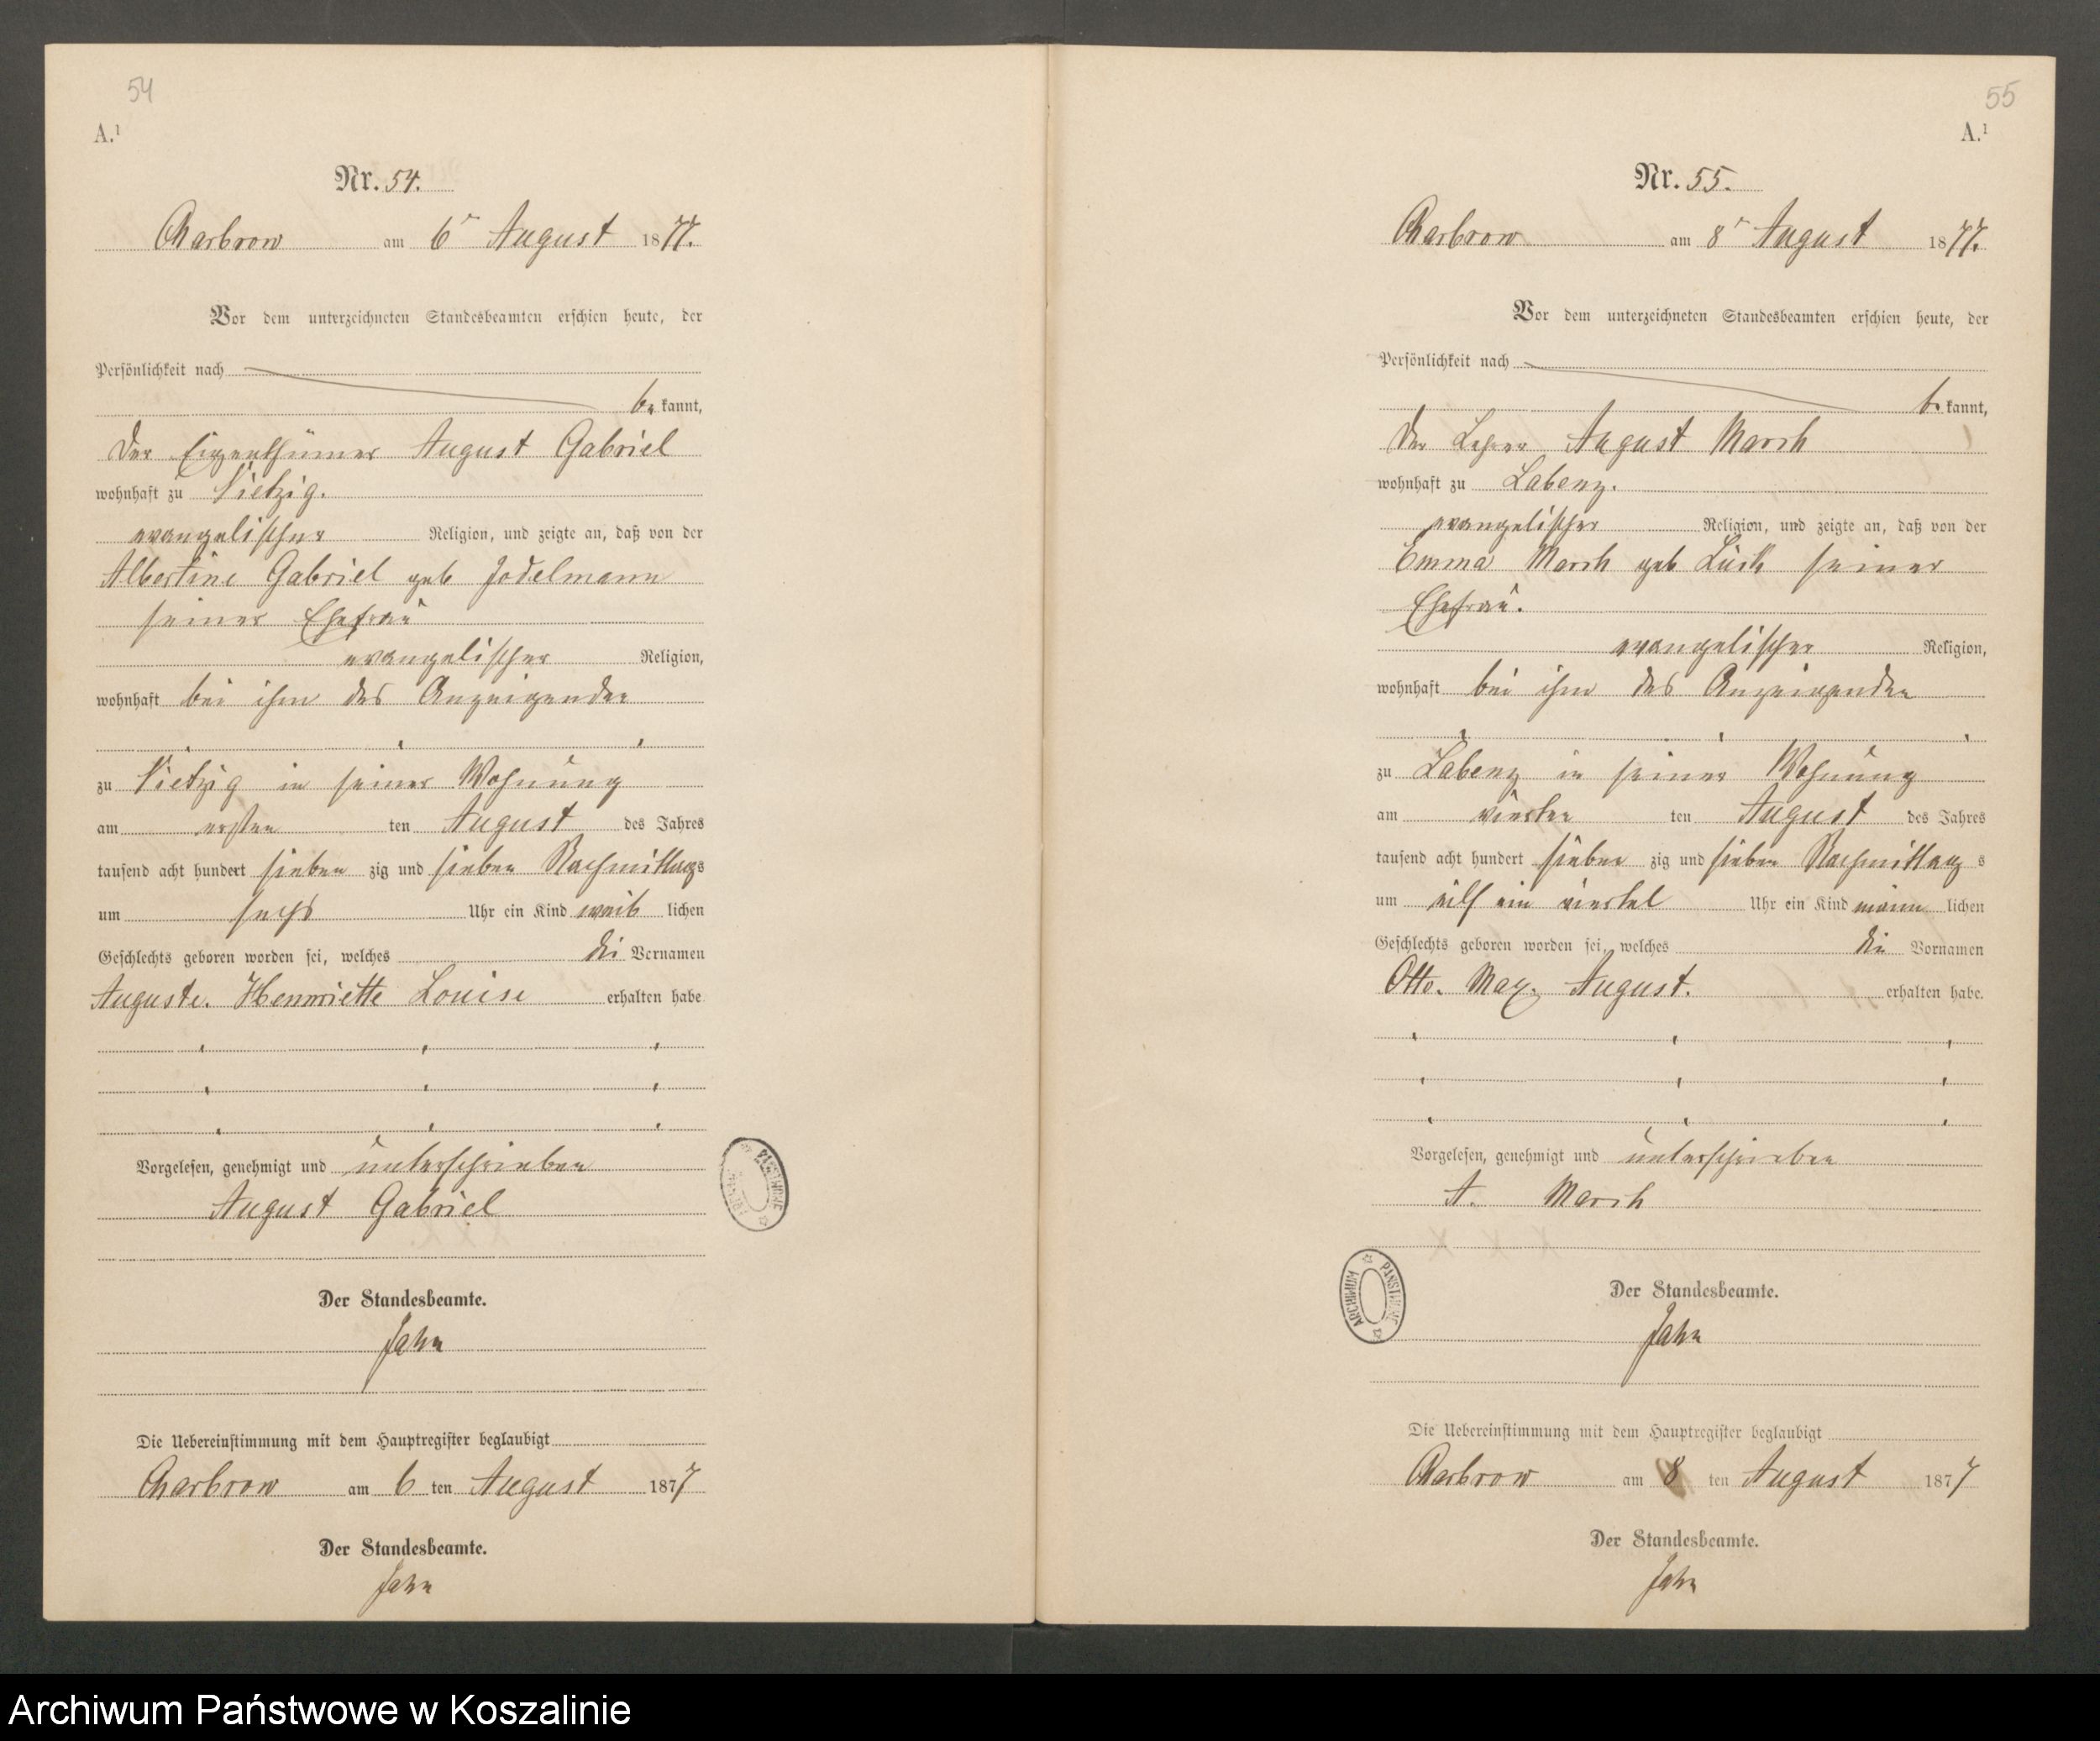 54
A.1
Nr. 54.
Charbrow am 6ᵗ August 1877.
Vor dem unterzeichneten Standesbeamten erschien heute, der
Persönlichkeit nach
be kannt,
Der Eigenthümer August Gabriel
wohnhaft zu Vietzig.
evangelischer Religion, und zeigte an, daß von der
Albertine Gabriel geb Jodelmann
seiner Ehefrau
evangelischer Religion,
wohnhaft bei ihm des Anzeigenden
zu Vietzig in seiner Wohnung
am ersten ten August des Jahres
tausend acht hundert sieben zig und sieben Nachmittags
um sechs Uhr ein Kind weib lichen
Geschlechts geboren worden sei, welches die Vornamen
Auguste. Henriette Louise erhalten habe
Vorgelesen, genehmigt und unterschrieben
August Gabriel
ARCHIWUM PAŃSTWOWE
Der Standesbeamte.
Jahn
Die Uebereinstimmung mit dem Hauptregister beglaubigt
Charbrow am 6 ten August 1877
Der Standesbeamte.
Jahn
55
A.1
Nr. 55.
Charbrow am 8ᵗ August 1877.
Vor dem unterzeichneten Standesbeamten erschien heute, der
Persönlichkeit nach
be kannt,
Der Lehrer August Marsh
wohnhaft zu Labenz.
evangelischer Religion, und zeigte an, daß von der
Emma geb seiner
Ehefrau.
evangelischer Religion,
wohnhaft bei ihm des Anzeigenden
zu Labenz in seiner Wohnung
am vierten ten August des Jahres
tausend acht hundert sieben zig und sieben Nachmittag s
um eilf ein viertel Uhr ein Kind männ lichen
Geschlechts geboren worden sei, welches die Vornamen
Otto. Max. August. erhalten habe.
Vorgelesen, genehmigt und unterschrieben
A.
ARCHIWUM PAŃSTWOWE
Der Standesbeamte.
Jahn
Die Uebereinstimmung mit dem Hauptregister beglaubigt
Charbrow am 8 ten August 1877
Der Standesbeamte.
Jahn
Archiwum Państwowe w Koszalinie